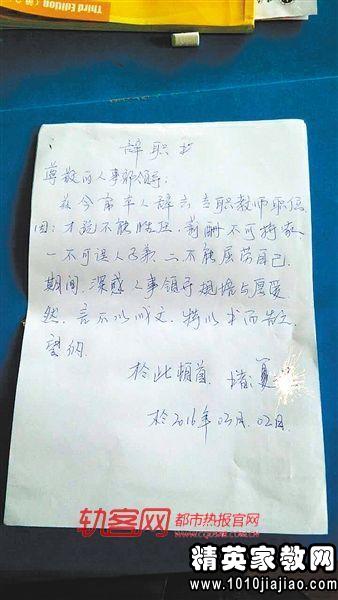 Third Edition
辞职书
尊敬的人事部领导:
今 人辞去专职教师职位
因: 才疏不能胜任, 薪酬不可持家.
一不可误人子弟 二不能屈劳自己.
期间, 深感人事领导 与厚爱
然, 言不以 文, 特以书而告之.
望纳.
於此顿首. 夏
於2016年03月02日.
轨客网 都市热报官网
精英家教网
www.1010jiajiao.com